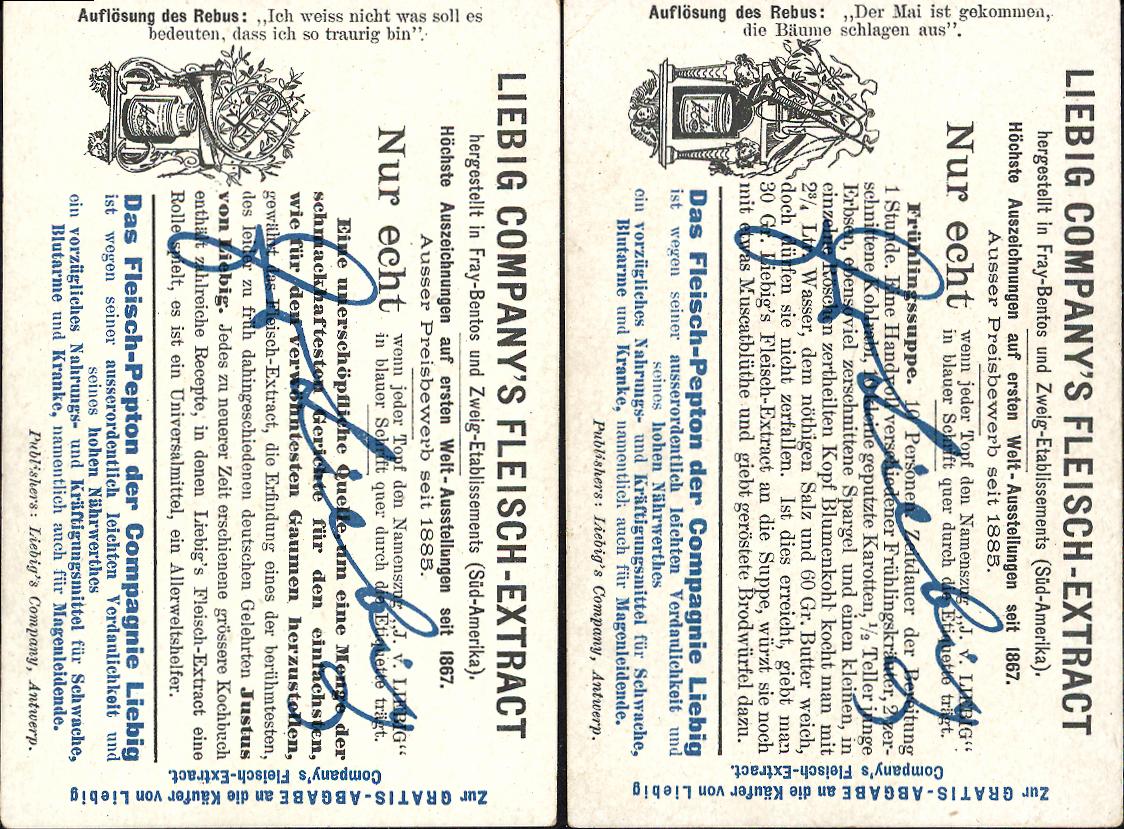 Auflösung des Rebus: „Ich weiss nicht was soll es
bedeuten, dass ich so traurig bin”.
LIEBIG COMPANY'S FLEISCH-EXTRACT
hergestellt in Fray-Bentos und Zweig-Etablissements (Süd-Amerika).
Höchste Auszeichnungen auf ersten Welt-Ausstellungen seit 1867.
Ausser Preisbewerb seit 1885.
Nur echt
wenn jeder Topf den Namenszug „J. v. LIEBIG“
in blauer Schrift quer durch die Etiquette trägt.
Eine unerschöpfliche Quelle, um eine Menge der
schmackhaftesten Gerichte für den einfachsten,
wie für den verwöhntesten Gaumen herzustellen,
gewährt das Fleisch-Extract, die Erfindung eines der berühmtesten,
des leider zu früh dahingeschiedenen deutschen Gelehrten Justus
von Liebig. Jedes zu neuerer Zeit erschienene grössere Kochbuch
enthält zahlreiche Recepte, in denen Liebig's Fleisch-Extract eine
Rolle spielt, es ist ein Universalmittel, ein Allerweltshelfer.
Das Fleisch-Pepton der Compagnie Liebig
ist wegen seiner ausserordentlich leichten Verdaulichkeit und
seines hohen Nährwerthes
ein vorzügliches Nahrungs- und Kräftigungsmittel für Schwache,
Blutarme und Kranke, namentlich auch für Magenleidende.
Publishers: Liebig's Company, Antwerp.
Zur GRATIS-ABGABE an die Käufer von Liebig
Company's Fleisch-Extract.
Auflösung des Rebus: „Der Mai ist gekommen,
die Bäume schlagen aus”.
LIEBIG COMPANY'S FLEISCH-EXTRACT
hergestellt in Fray-Bentos und Zweig-Etablissements (Süd-Amerika).
Höchste Auszeichnungen auf ersten Welt-Ausstellungen seit 1867.
Ausser Preisbewerb seit 1885.
Nur echt
wenn jeder Topf den Namenszug „J. v. LIEBIG“
in blauer Schrift quer durch die Etiquette trägt.
Frühlingssuppe. 10 Personen. Zeitdauer der Bereitung
1 Stunde. Eine Handvoll verschiedener Frühlingskräuter, 2 zer-
schnittene Kohlrabi, kleine geputzte Karotten, ½ Teller junge
Erbsen, ebensoviel zerschnittene Spargel und einen kleinen, in
einzelne Röschen zertheilten Kopf Blumenkohl kocht man mit
2¾ Ltr. Wasser, dem nöthigen Salz und 60 Gr. Butter weich,
doch dürfen sie nicht zerfallen. Ist dies erreicht, giebt man
30 Gr. Liebig's Fleisch-Extract an die Suppe, würzt sie noch
mit etwas Muscatblüthe und giebt geröstete Brodwürfel dazu.
Das Fleisch-Pepton der Compagnie Liebig
ist wegen seiner ausserordentlich leichten Verdaulichkeit und
seines hohen Nährwerthes
ein vorzügliches Nahrungs- und Kräftigungsmittel für Schwache,
Blutarme und Kranke, namentlich auch für Magenleidende.
Publishers: Liebig's Company, Antwerp.
Zur GRATIS-ABGABE an die Käufer von Liebig
Company's Fleisch-Extract.